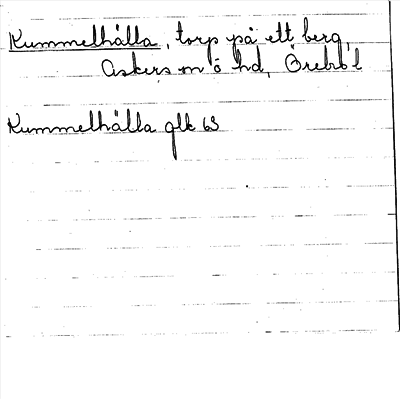 Kummelhälla, torp på ett berg,
Askers sn ö hd, Örebro l
Kummelhälla glk 63